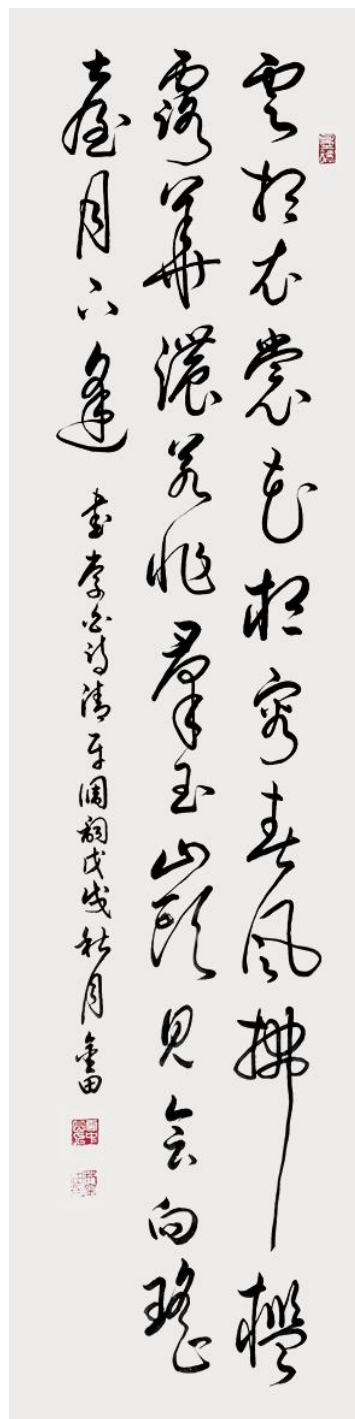 雲想衣裳花想容春風拂檻
露華濃若非羣玉山頭見會向瑤
臺月下逢
書李白詩清平調詞戊戌秋月